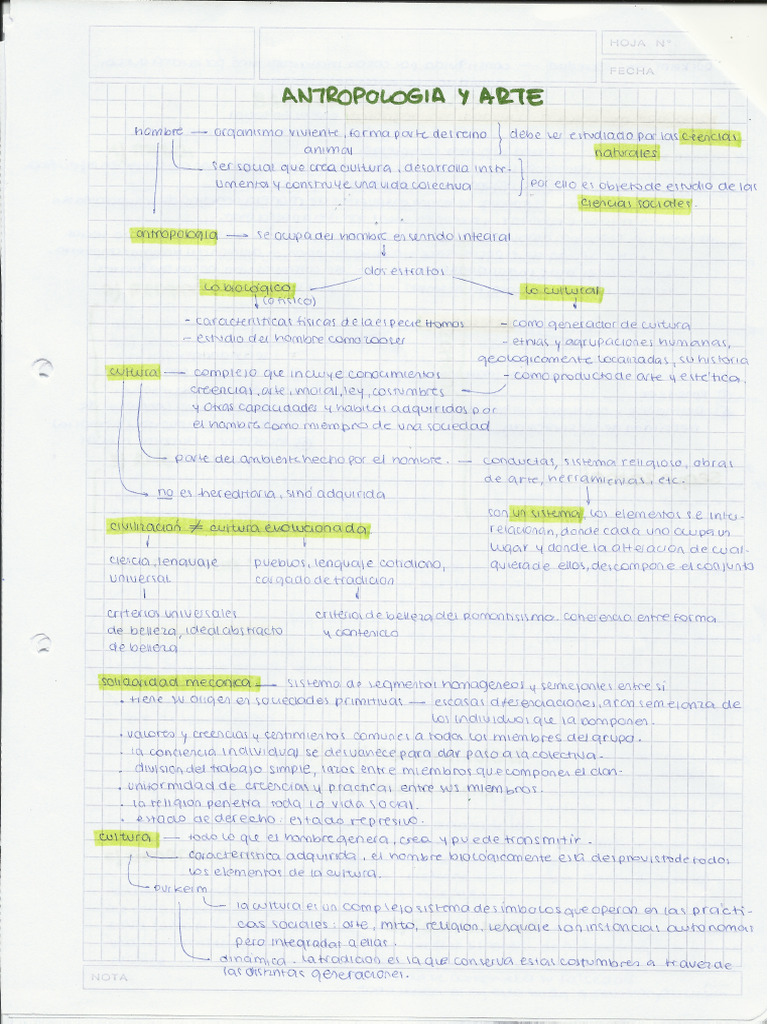 HOJA N°
FECHA
ANTROPOLOGIA Y ARTE
hombre — organismo viviente, forma parte del reino } debe ser estudiado por las ciencias
animal
naturales
ser social que crea cultura, desarrolla instr-
umentos y construye una vida colectiva } por ello es objeto de estudio de las
ciencias sociales.
antropologia → se ocupa del hombre en sentido integral
dos estratos
lo biológico
lo cultural
(o físico)
- características físicas de la especie Homos
- como generador de cultura
- estudio del hombre como zooser
- etnias y agrupaciones humanas,
geologicamente localizadas, su historia
cultura — complejo que incluye conocimientos
- como producto de arte y estética.
creencias, arte, moral, ley, costumbres
y otras capacidades y habitos adquiridos por
el hombre como miembro de una sociedad
parte del ambiente hecho por el hombre. — conductas, sistema religioso, obras
de arte, herramientas, etc.
no es hereditaria, sinó adquirida
son un sistema, los elementos se inter-
relacionan, donde cada uno ocupa un
lugar y donde la alteración de cual-
quiera de ellos, descompone el conjunto
civilización ≠ cultura evolucionada.
ciencia, lenguaje
universal
pueblos, lenguaje cotidiano,
cargado de tradición
criterios universales
de belleza, ideal abstracto
de belleza
criterios de belleza del romantisismo. coherencia entre forma
y contenido
solidaridad mecanica — sistema de segmentos homogeneos y semejantes entre si
• tiene su origen en sociedades primitivas — escasas diferenciaciones, gran semejanza de
los individuos que la componen.
• valores y creencias y sentimientos comunes a todos los miembros del grupo.
• la conciencia individual se desvanece para dar paso a la colectiva.
• división del trabajo simple, lazos entre miembros que componen el clan.
• uniformidad de creencias y practicas entre sus miembros.
• la religion penetra toda la vida social.
• estado de derecho: estado represivo.
cultura — todo lo que el hombre genera, crea y puede transmitir.
caracteristica adquirida, el hombre biológicamente está desprovisto de todos
los elementos de la cultura.
Durkeim
la cultura es un complejo sistema de simbolos que operan en las practi-
cas sociales: arte, mito, religion, lenguaje son instancias autonomas
pero integradas a ellas.
dinámica. la tradicion es la que conserva estas costumbres a traves de
las distintas generaciones.
NOTA